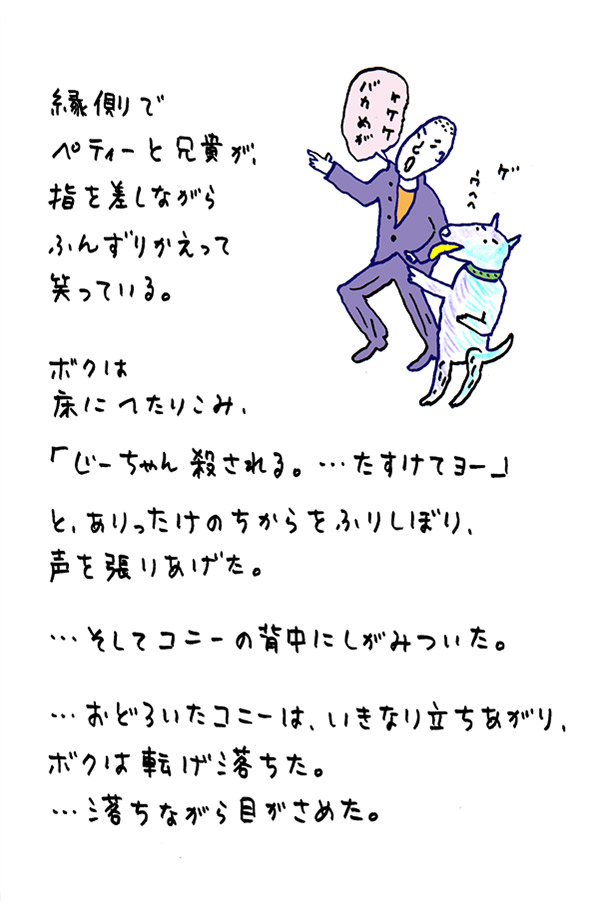 ケケケ
バカめが
ゲ
ふっっっ
縁側で
ペティーと兄貴が、
指を差しながら
ふんずりかえって
笑っている。
ボクは
床にへたりこみ、
「じーちゃん殺される。…たすけてヨー」
と、ありったけのちからをふりしぼり、
声を張りあげた。
…そしてコニーの背中にしがみついた。
…おどろいたコニーは、いきなり立ちあがり、
ボクは転げ落ちた。
…落ちながら目がさめた。